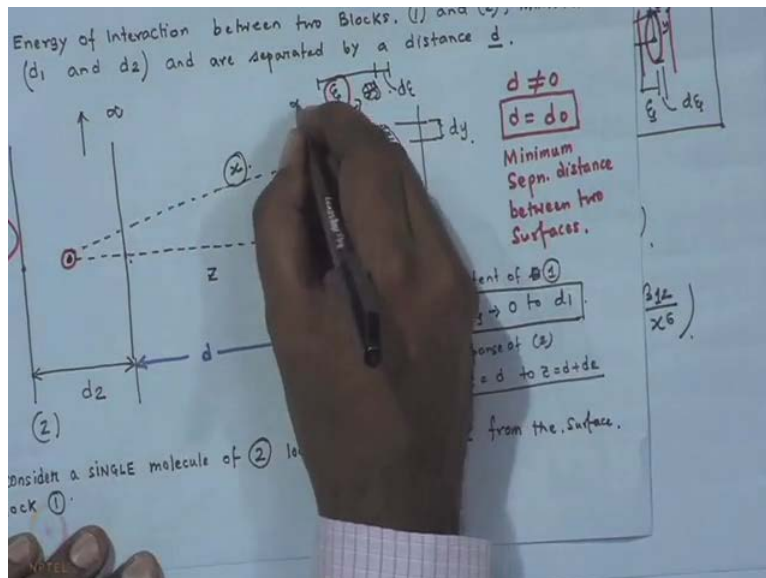 Energy of Interaction between two Blocks. (1) and (2),
(d1 and d2) and are separated by a distance d.
∞
ξ
dξ
dy.
x
z
d
d2
(2)
d ≠ 0
d = do
Minimum
Sepn. distance
between two
Surfaces.
y
ξ dξ
of 1
→ 0 to d1
of (2)
= d to z = d+d2
from the surface.
Consider a SINGLE molecule of 2
1.
β12
x6
NPTEL